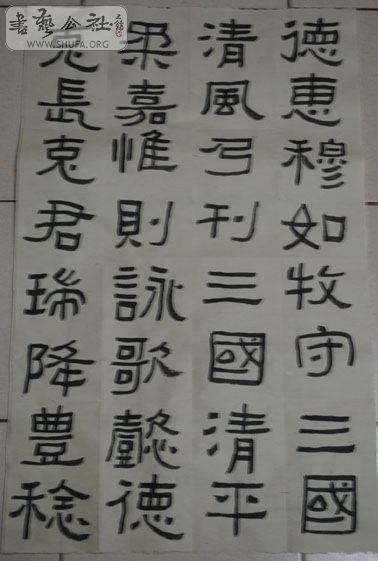 書藝公社
WWW.SHUFA.ORG
德惠穆如牧守三國
清風乃刊三國清平
柔嘉惟則詠歌懿德
克長克君瑞降豊稔